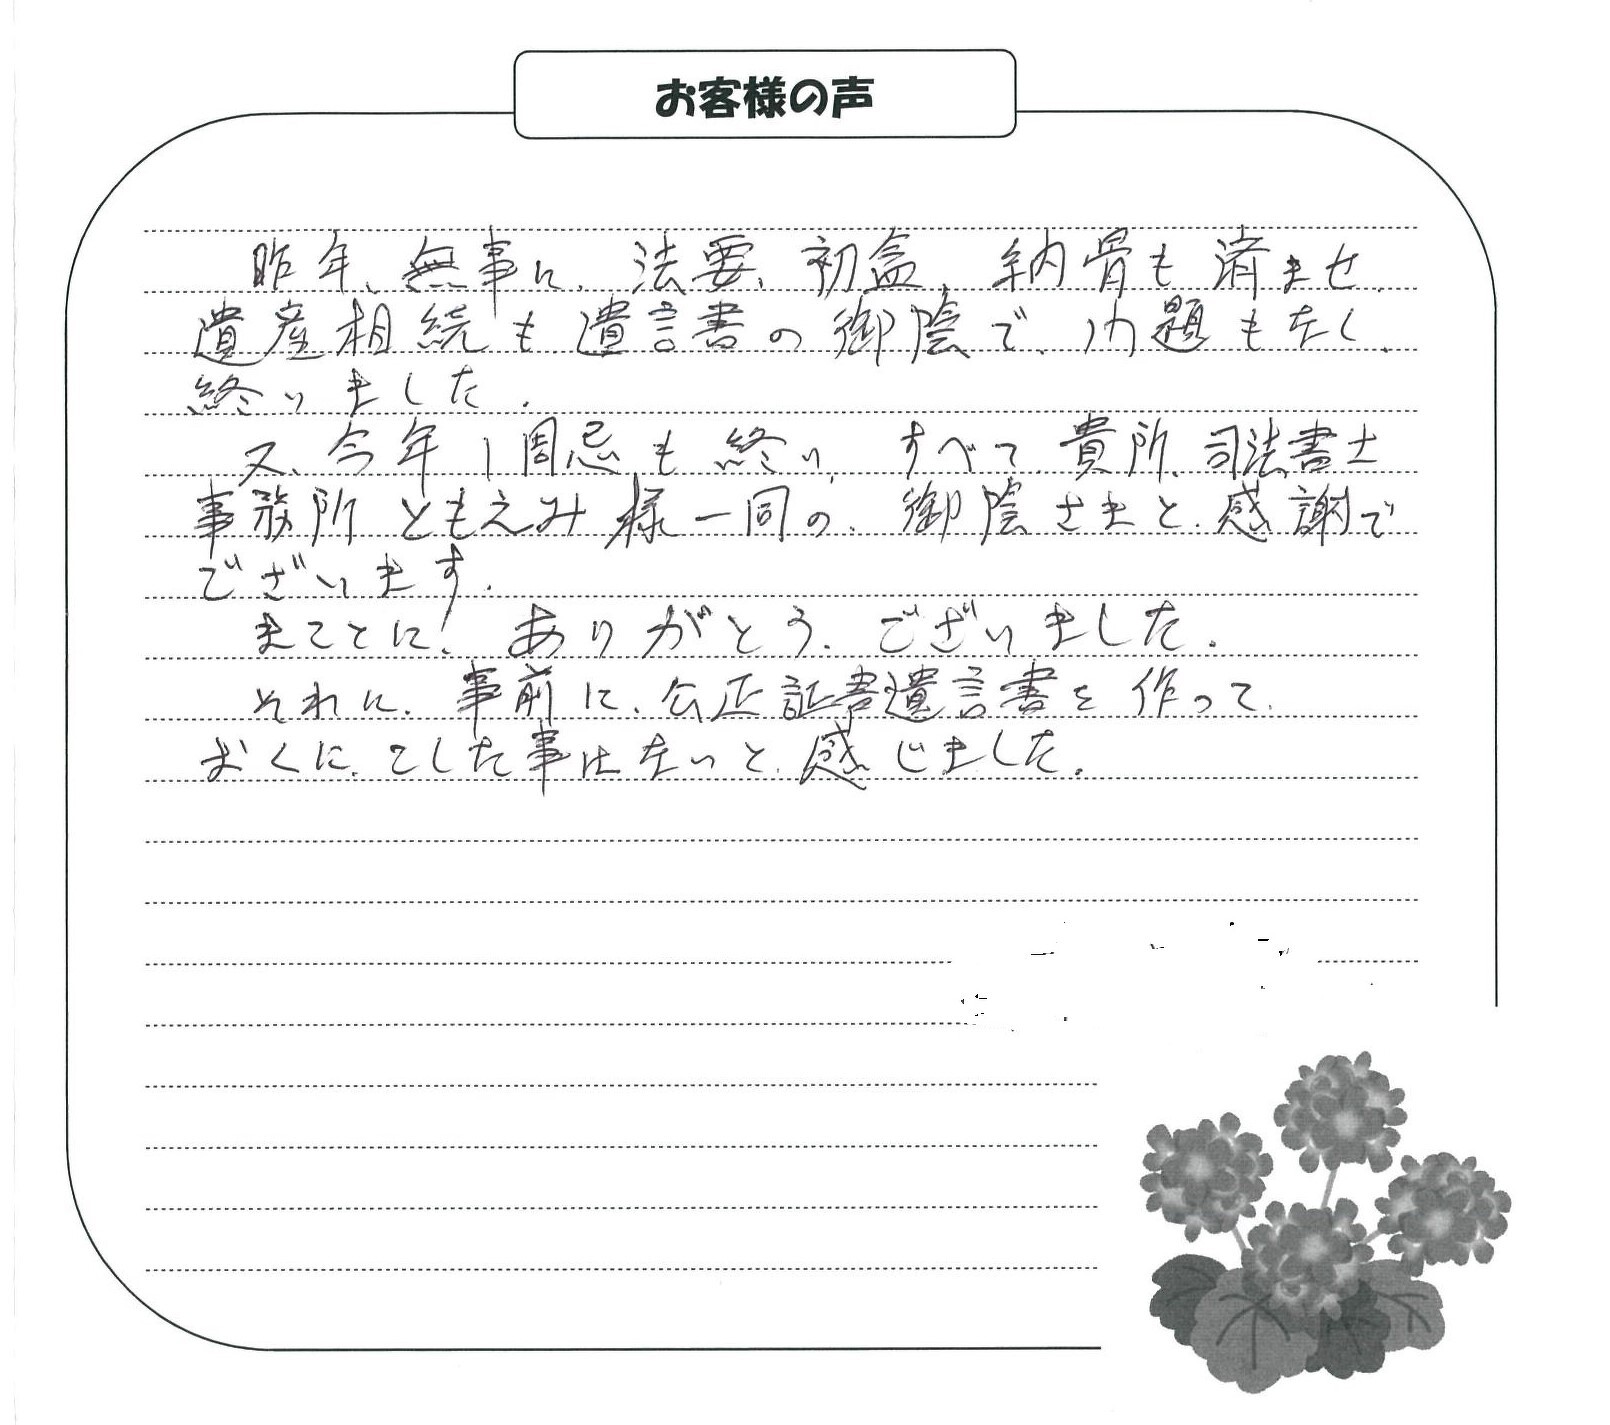 お客様の声
昨年、無事に、法要、初盆、納骨も済ませ、
遺産相続も遺言書の御陰で、問題もなく、
終りました。
又、今年1周忌も終り、すべて、貴所、司法書士
事務所ともえみ様一同の、御陰さまと、感謝で
ございます。
まことに、ありがとう、ございました。
それに、事前に、公正証書遺言書を作って、
おくに、こした事はないと、感じました。